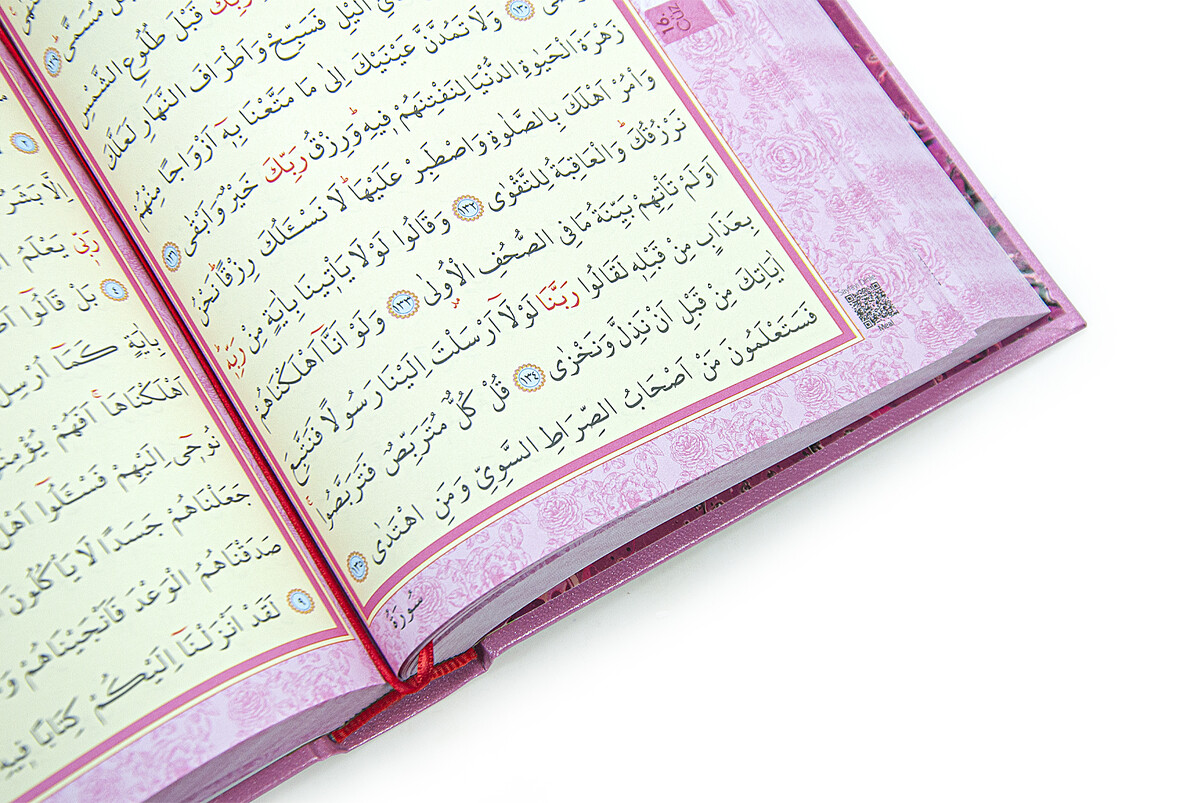 16. Cüz
رَبِّكَ قَبْلَ طُلُوعِ الشَّمْسِ
الَّيْلِ فَسَبِّحْ وَاَطْرَافَ النَّهَارِ لَعَلَّكَ
١٣٠ وَلَا تَمُدَّنَّ عَيْنَيْكَ اِلٰى مَا مَتَّعْنَا بِهٖٓ اَزْوَاجًا مِنْهُمْ
زَهْرَةَ الْحَيٰوةِ الدُّنْيَا لِنَفْتِنَهُمْ فٖيهِ وَرِزْقُ رَبِّكَ خَيْرٌ وَاَبْقٰى ١٣١
وَأْمُرْ اَهْلَكَ بِالصَّلٰوةِ وَاصْطَبِرْ عَلَيْهَا لَا نَسْـَٔلُكَ رِزْقًا نَحْنُ
نَرْزُقُكَ وَالْعَاقِبَةُ لِلتَّقْوٰى ١٣٢ وَقَالُوا لَوْلَا يَأْتٖينَا بِاٰيَةٍ مِنْ رَبِّهٖ
اَوَلَمْ تَأْتِهِمْ بَيِّنَةُ مَا فِى الصُّحُفِ الْاُولٰى ١٣٣ وَلَوْ اَنَّٓا اَهْلَكْنَاهُمْ
بِعَذَابٍ مِنْ قَبْلِهٖ لَقَالُوا رَبَّنَا لَوْلَٓا اَرْسَلْتَ اِلَيْنَا رَسُولًا فَنَتَّبِعَ
اٰيَاتِكَ مِنْ قَبْلِ اَنْ نَذِلَّ وَنَخْزٰى ١٣٤ قُلْ كُلٌّ مُتَرَبِّصٌ فَتَرَبَّصُوا
فَسَتَعْلَمُونَ مَنْ اَصْحَابُ الصِّرَاطِ السَّوِىِّ وَمَنِ اهْتَدٰى ١٣٥
سُورَةُ
Meal
اِلَّا بَشَرٌ
رَبّٖى يَعْلَمُ
٤ بَلْ قَالُٓوا
بِاٰيَةٍ كَمَٓا اُرْسِلَ
اَهْلَكْنَاهَا اَفَهُمْ يُؤْمِنُونَ
نُوحٖٓى اِلَيْهِمْ فَسْـَٔلُٓوا اَهْلَ
جَعَلْنَاهُمْ جَسَدًا لَا يَأْكُلُونَ
صَدَقْنَاهُمُ الْوَعْدَ فَاَنْجَيْنَاهُمْ
٩ لَقَدْ اَنْزَلْنَٓا اِلَيْكُمْ كِتَابًا فٖيهِ